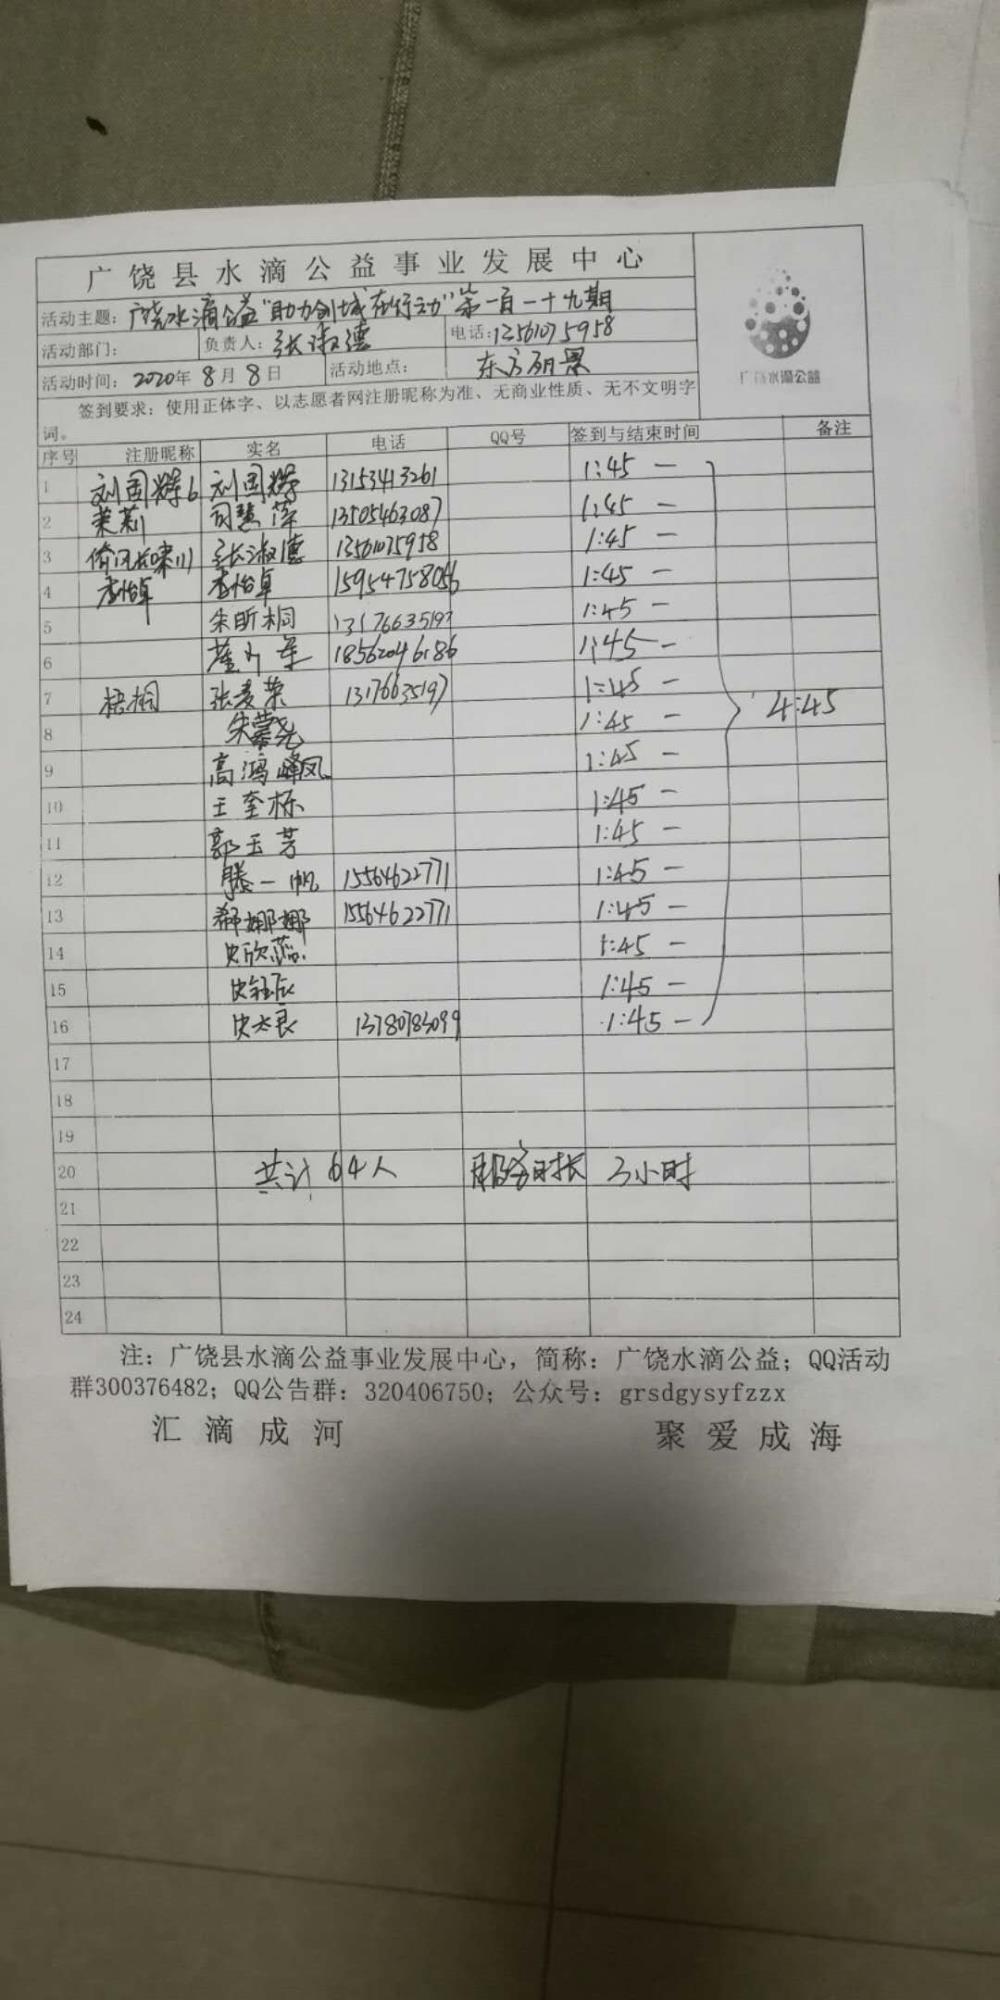 广饶县水滴公益事业发展中心
活动主题：广饶水滴公益"助力创城在行动"第一百一十九期
活动部门： 负责人：张淑德 电话：13561075958
活动时间：2020年8月8日 活动地点： 东方丽景
广饶水滴公益
签到要求：使用正体字、以志愿者网注册昵称为准、无商业性质、无不文明字
词。
序号 注册昵称 实名 电话 QQ号 签到与结束时间 备注
1 刘国辉6 刘国辉 13153413261 1:45 —
2 茉莉 司慧萍 13505463087 1:45 —
3 张淑德 13561075958 1:45 —
4 李怡卓 李怡卓 15954758056 1:45 —
5 朱昕桐 13176635197 1:45 —
6 18562046186 1:45 —
7 梧桐 张麦荣 13176635197 1:45 — 4:45
8 朱 尧 1:45 —
9 高鸿 凤 1:45 —
10 王奎栋 1:45 —
11 郭玉芳 1:45 —
12 滕一帆 15564622771 1:45 —
13 娜娜 15564622771 1:45 —
14 史欣蕊 1:45 —
15 史钰辰 1:45 —
16 史太良 13780783099 1:45 —
17
18
19
20 共计64人 服务时长 3小时
21
22
23
24
注：广饶县水滴公益事业发展中心，简称：广饶水滴公益；QQ活动
群300376482；QQ公告群：320406750；公众号：grsdgysyfzzx
汇滴成河 聚爱成海